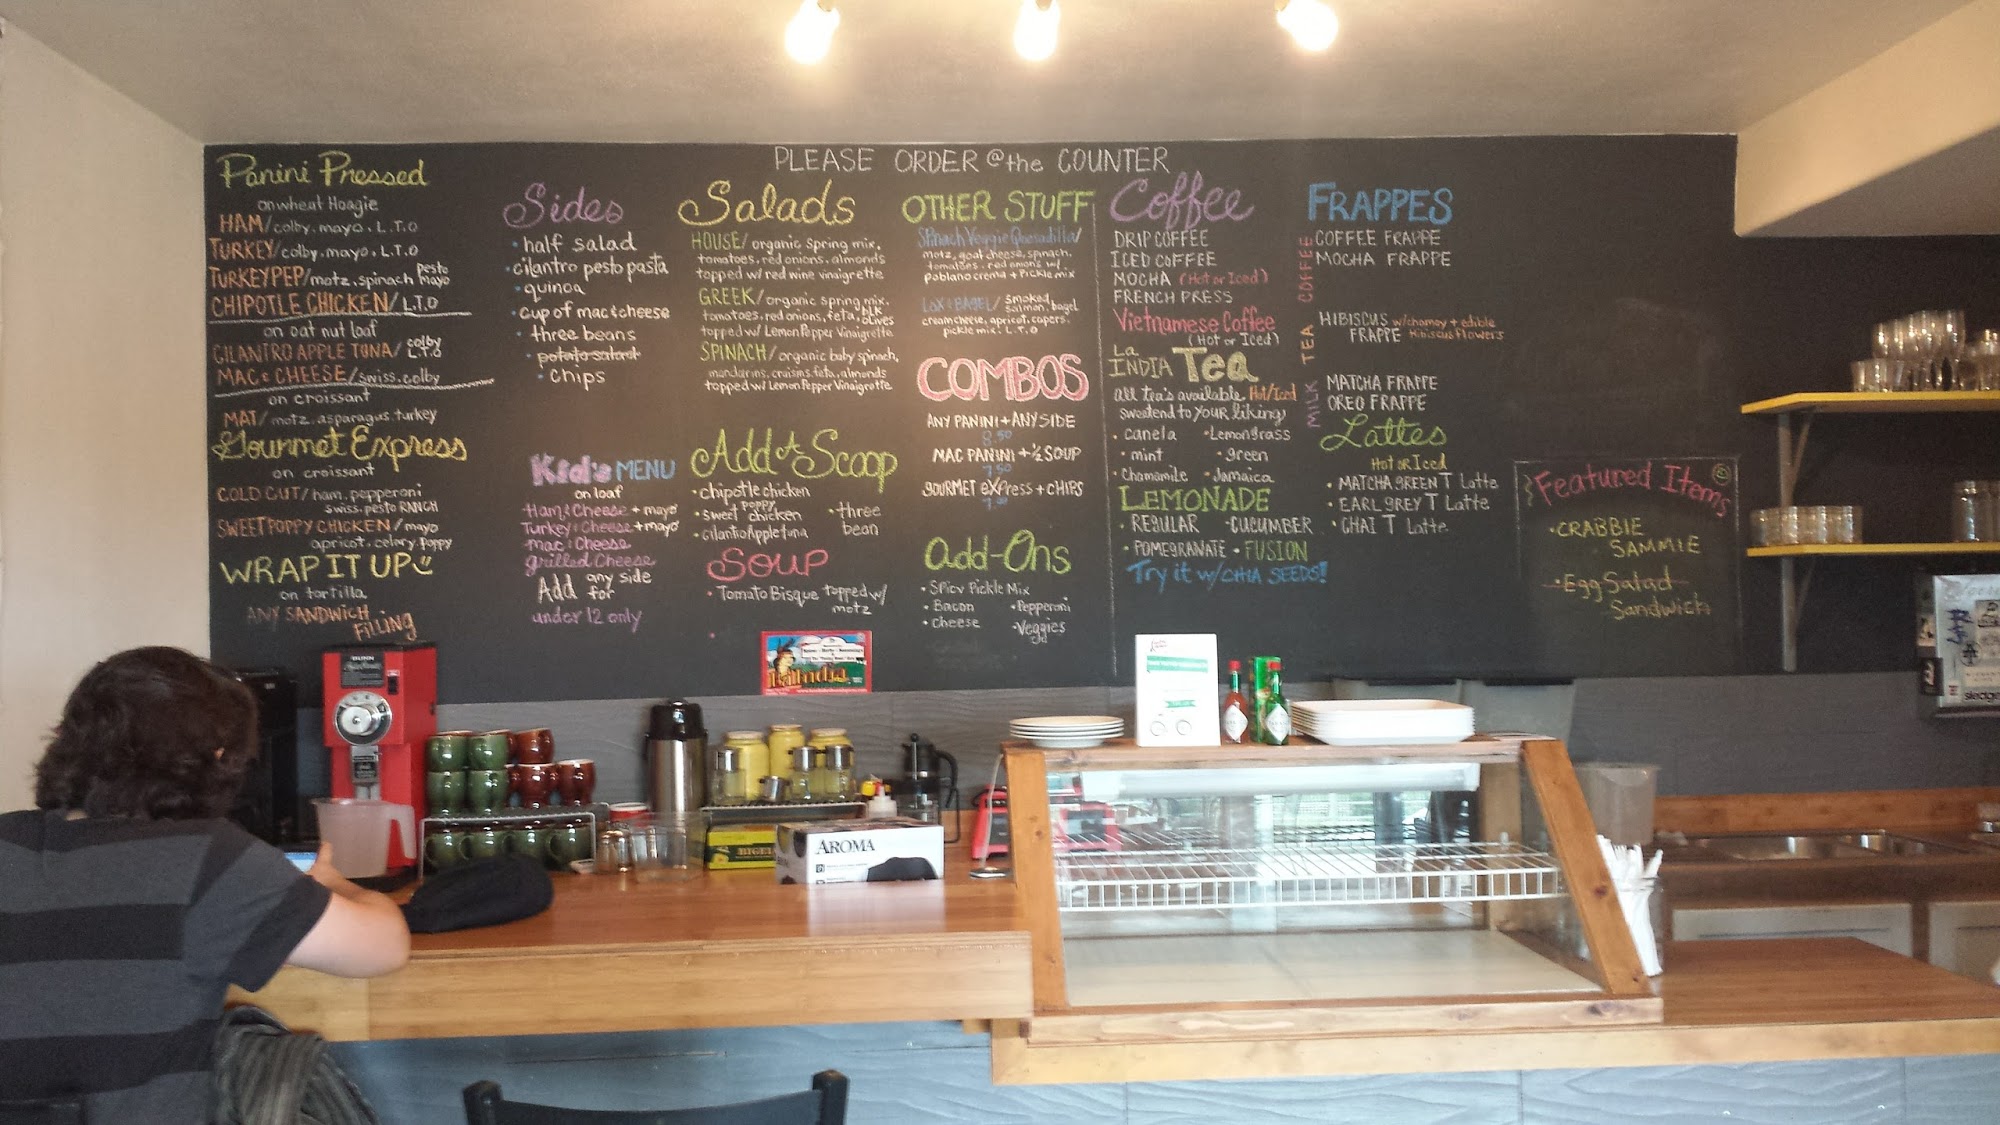 PLEASE ORDER @ the COUNTER
Panini Pressed
on wheat Hoagie
HAM/colby.mayo.L.T.O
TURKEY/colby.mayo.L.T.O
TURKEYPEP/motz.spinach pesto mayo
CHIPOTLE CHICKEN/L.T.O
on oat nut loaf
CILANTRO APPLE TUNA/colby L.T.O
MAC & CHEESE/swiss.colby
on croissant
MAT/motz.asparagus.turkey
Gourmet Express
on croissant
COLD CUT/ham.pepperoni
swiss.pesto RANCH
SWEET POPPY CHICKEN/mayo
apricot.celery.poppy
WRAP IT UP
on tortilla
ANY SANDWICH
FILLING
Sides
• half salad
• cilantro pesto pasta
• quinoa
• cup of mac & cheese
• three beans
• potato salad
• chips
Kid's MENU
on loaf
Ham & Cheese + mayo
Turkey & Cheese + mayo
Mac & Cheese
grilled Cheese
Add any side for
under 12 only
Salads
HOUSE/organic spring mix.
tomatoes.red onions.almonds
topped w/ red wine vinaigrette
GREEK/organic spring mix.
tomatoes, red onions, feta, blk olives
topped w/ Lemon Pepper Vinaigrette
SPINACH/organic baby spinach,
mandarins.craisins.feta.almonds
topped w/ Lemon Pepper Vinaigrette
Add A Scoop
• chipotle chicken
• sweet poppy chicken
• cilantro Apple tuna
• three bean
SOUP
• Tomato Bisque topped w/ motz
OTHER STUFF
Spinach Veggie Quesadilla/
motz, goat cheese, spinach,
tomatoes. red onions w/
poblano crema + Pickle mix
LOX & BAGEL/smoked salmon, bagel
creamcheese, apricot, capers.
pickle mix. L.T.O
COMBOS
ANY PANINI + ANY SIDE
8.50
MAC PANINI + ½ SOUP
7.50
GOURMET eXPress + CHIPS
Add-Ons
• Spicy Pickle Mix
• Bacon
• Cheese
• Pepperoni
• Veggies
Coffee
DRIP COFFEE
ICED COFFEE
MOCHA (Hot or Iced)
FRENCH PRESS
Vietnamese Coffee
(Hot or Iced)
La INDIA Tea
all tea's available Hot/Iced
sweetend to YOUR liking
• canela
• mint
• chamomile
• Lemongrass
• green
• Jamaica
LEMONADE
• REGULAR • CUCUMBER
• POMEGRANATE • FUSION
Try it w/ CHIA SEEDS!
FRAPPES
COFFEE
COFFEE FRAPPE
MOCHA FRAPPE
TEA
HIBISCUS w/chamoy + edible
FRAPPE Hibiscus flowers
MILK
MATCHA FRAPPE
OREO FRAPPE
Lattes
Hot OR Iced
• MATCHA GREEN T Latte
• EARL GREY T Latte
• CHAI T Latte
Featured Items
• CRABBIE
SAMMIE
• Egg Salad
Sandwich
BUNN
AROMA
BIGEL